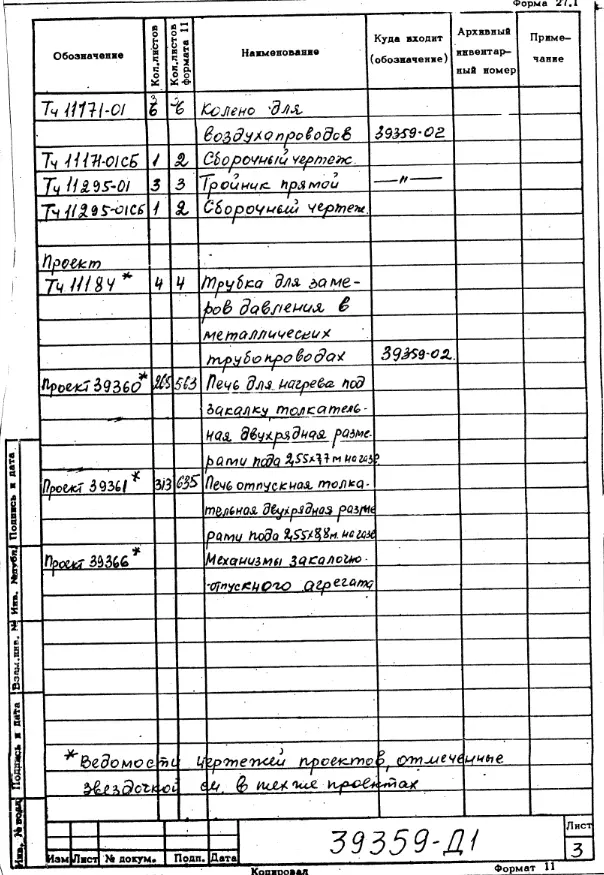 Форма 27.1
Обозначение Кол.листов Кол.листов формата 11 Наименование Куда входит (обозначение) Архивный инвентар- ный номер Приме- чание
Тч 11171-01 6 6 Колено для
воздухапроводов 39359-02
Тч 11171-01СБ 1 2 Сборочный чертеж
Тч 11295-01 3 3 Тройник прямой —"—
Тч 11295-01СБ 1 2 Сборочный чертеж.
Проект
Тч 11184* 4 4 Трубка для заме-
ров давления в
металлических
трубопроводах 39359-02.
Проект 39360* 265 563 Печь для нагрева под
закалку толкатель-
ная двухрядная разме-
рами пода 2,55х7,7м на газе
Проект 39361* 313 635 Печь отпускная толка-
тельная двухрядная разме
рами пода 2,55х8,8м. на газе
Проект 39366* Механизмы закалочно-
-отпускного агрегата
*Ведомости чертежей проектов, отмеченные
звездочкой см. в тех же проектах
Подпись и дата
Инв. № дубл.
Взам.инв. №
Подпись и дата
Инв. № подл
Изм Лист № докум. Подп. Дата
39359-Д1
Лист
3
Копировал Формат 11